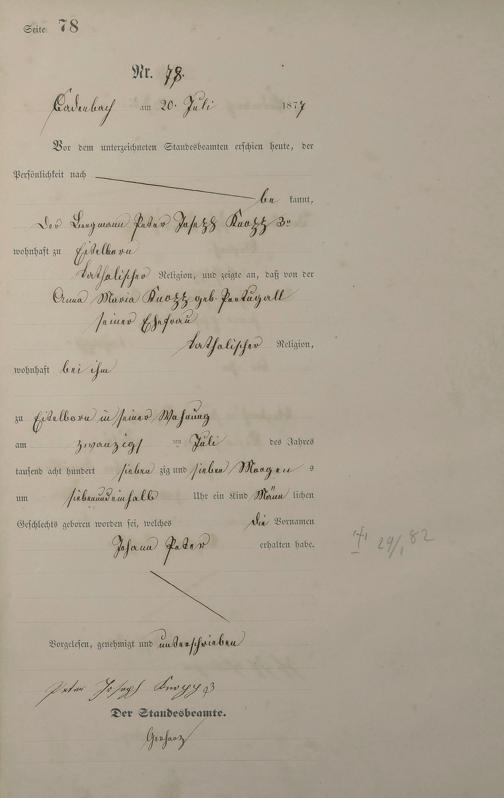 Seite 78
Nr. 78.
Cadenbach am 20. Juli 1877
Vor dem unterzeichneten Standesbeamten erschien heute, der
Persönlichkeit nach
be kannt,
der Bergmann Peter Joseph Knopp 3r
wohnhaft zu Eitelborn
katholischer Religion, und zeigte an, daß von der
Anna Maria Knopp geb. Portugall
seiner Ehefrau
katholischer Religion,
wohnhaft bei ihm
zu Eitelborn in seiner Wohnung
am zwanzigsten Juli des Jahres
tausend acht hundert sieben zig und sieben Morgens
um siebenundeinhalb Uhr ein Kind Männ lichen
Geschlechts geboren worden sei, welches die Vornamen
Johann Peter erhalten habe.
29/1 82
Vorgelesen, genehmigt und unterschrieben
Peter Joseph Knopp 3
Der Standesbeamte.
Gerharz